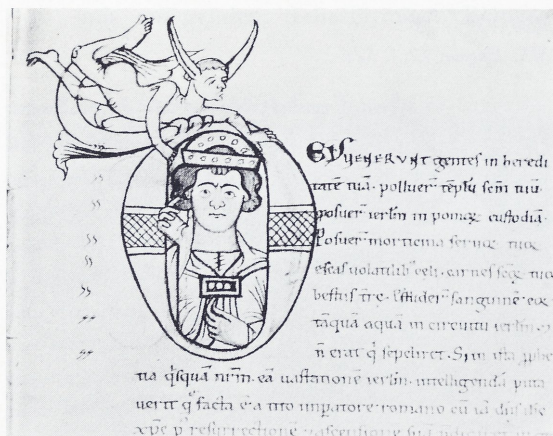 EUS VENERUNT gentes in heredi
tatē tuā· polluer̄ tēplū sc̄m tuū·
posuer̄ ierlm̄ in pomoꝝ custodiā·
Posuer̄ morticina seruoꝝ tuoꝝ
escas uolatilib; celi· carnes sc̄oꝝ tuoꝝ
bestiis tr̄ę· Effuder̄ sanguinē eoꝝ
tāquā aquā in circuitu ierlm̄·
n̄ erat q̇ sepeliret· Si in ista ꝓphe
tia q̇squā nr̄m̄ eā uastationē ierlm̄· intelligendā puta
uerit q̄ facta ē a tito imperatore romano cū iā dn̄s ih̄c
xp̄c p̄ resurrectionē ascensionē suā